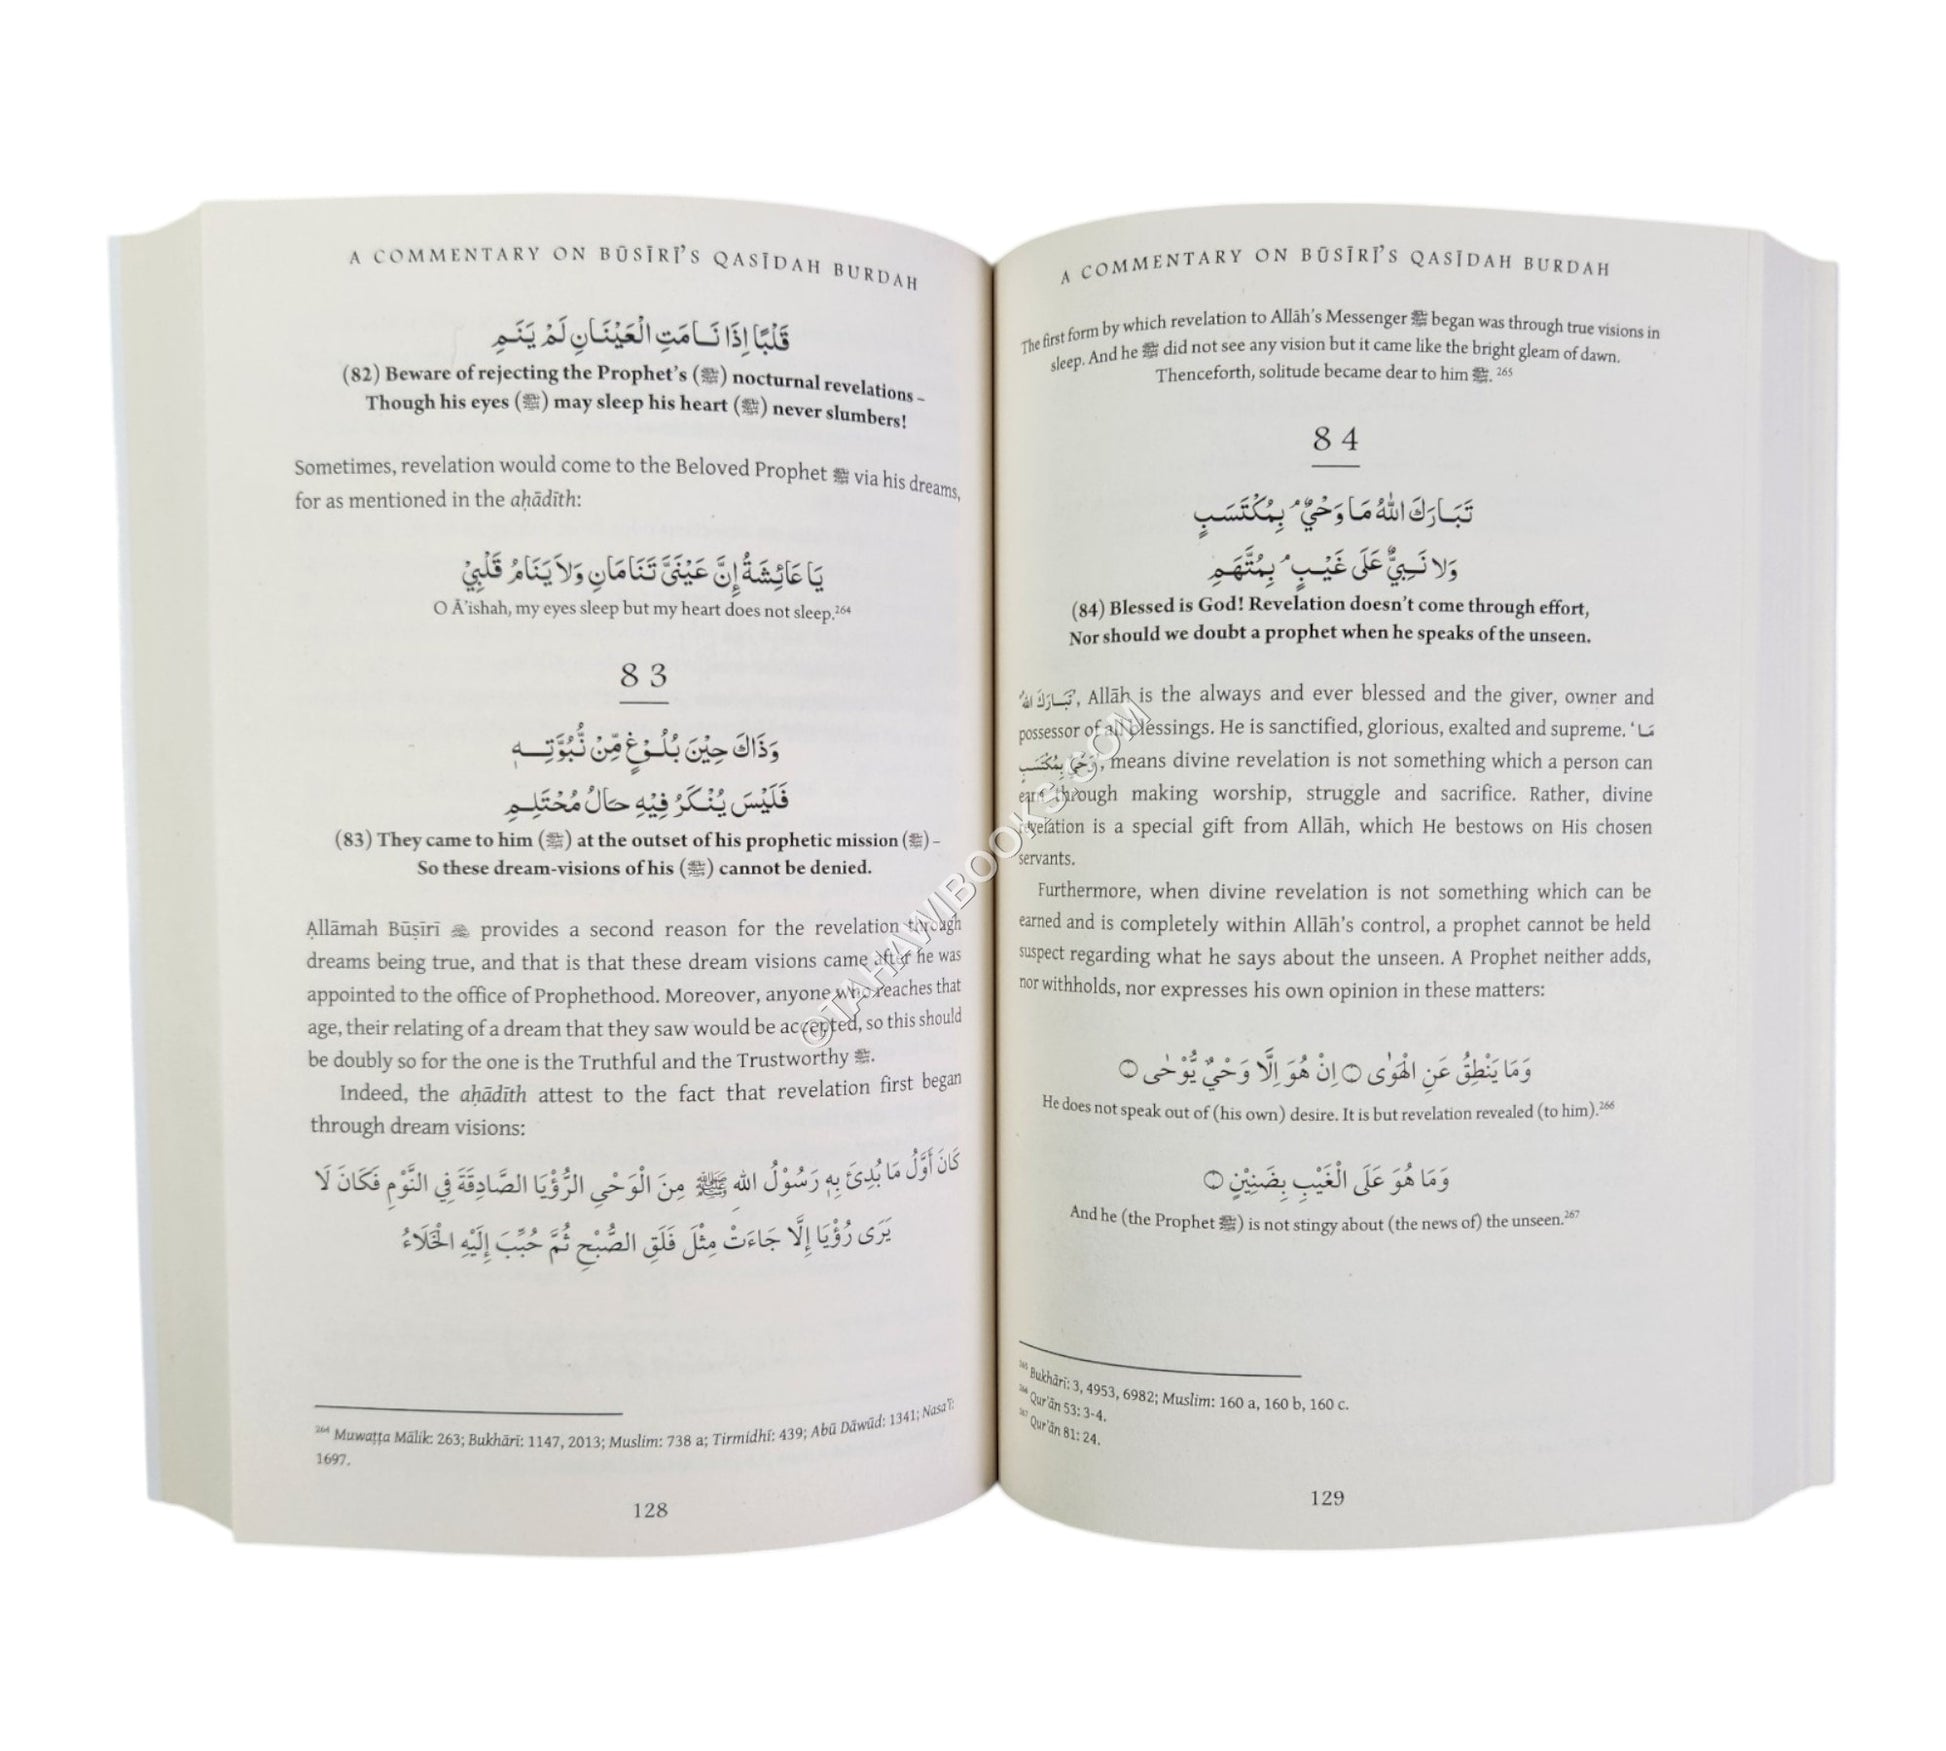 A COMMENTARY ON BŪSĪRĪ'S QASĪDAH BURDAH
قَلْبًا إِذَا نَامَتِ الْعَيْنَانِ لَمْ يَنَمِ
(82) Beware of rejecting the Prophet's (ﷺ) nocturnal revelations –
Though his eyes (ﷺ) may sleep his heart (ﷺ) never slumbers!
Sometimes, revelation would come to the Beloved Prophet ﷺ via his dreams,
for as mentioned in the aḥādīth:
يَا عَائِشَةُ إِنَّ عَيْنَيَّ تَنَامَانِ وَلَا يَنَامُ قَلْبِيْ
O Ā'ishah, my eyes sleep but my heart does not sleep.264
83
وَذَاكَ حِيْنَ بُلُوْغٍ مِّنْ نُّبُوَّتِهٖ
فَلَيْسَ يُنْكَرُ فِيْهِ حَالُ مُحْتَلِمِ
(83) They came to him (ﷺ) at the outset of his prophetic mission (ﷺ) –
So these dream-visions of his (ﷺ) cannot be denied.
Allāmah Būṣīrī provides a second reason for the revelation through
dreams being true, and that is that these dream visions came after he was
appointed to the office of Prophethood. Moreover, anyone who reaches that
age, their relating of a dream that they saw would be accepted, so this should
be doubly so for the one is the Truthful and the Trustworthy ﷺ.
Indeed, the aḥādīth attest to the fact that revelation first began
through dream visions:
كَانَ أَوَّلُ مَا بُدِئَ بِهٖ رَسُوْلُ اللهِ ﷺ مِنَ الْوَحْيِ الرُّؤْيَا الصَّادِقَةَ فِي النَّوْمِ فَكَانَ لَا
يَرَى رُؤْيَا إِلَّا جَاءَتْ مِثْلَ فَلَقِ الصُّبْحِ ثُمَّ حُبِّبَ إِلَيْهِ الْخَلَاءُ
264 Muwaṭṭa Mālik: 263; Bukhārī: 1147, 2013; Muslim: 738 a; Tirmidhī: 439; Abū Dāwūd: 1341; Nasa'ī:
1697.
128
A COMMENTARY ON BŪSĪRĪ'S QASĪDAH BURDAH
The first form by which revelation to Allāh's Messenger ﷺ began was through true visions in
sleep. And he ﷺ did not see any vision but it came like the bright gleam of dawn.
Thenceforth, solitude became dear to him ﷺ. 265
84
تَبَارَكَ اللهُ مَا وَحْيٌ بِمُكْتَسَبٍ
وَلَا نَبِيٌّ عَلَى غَيْبٍ بِمُتَّهَمِ
(84) Blessed is God! Revelation doesn't come through effort,
Nor should we doubt a prophet when he speaks of the unseen.
'تَبَارَكَ اللهُ', Allāh is the always and ever blessed and the giver, owner and
possessor of all blessings. He is sanctified, glorious, exalted and supreme. 'مَا
وَحْيٌ بِمُكْتَسَبٍ', means divine revelation is not something which a person can
earn through making worship, struggle and sacrifice. Rather, divine
revelation is a special gift from Allāh, which He bestows on His chosen
servants.
Furthermore, when divine revelation is not something which can be
earned and is completely within Allāh's control, a prophet cannot be held
suspect regarding what he says about the unseen. A Prophet neither adds,
nor withholds, nor expresses his own opinion in these matters:
وَمَا يَنْطِقُ عَنِ الْهَوٰى ۝ اِنْ هُوَ اِلَّا وَحْيٌ يُّوْحٰى ۝
He does not speak out of (his own) desire. It is but revelation revealed (to him).266
وَمَا هُوَ عَلَى الْغَيْبِ بِضَنِيْنٍ ۝
And he (the Prophet ﷺ) is not stingy about (the news of) the unseen.267
265 Bukhārī: 3, 4953, 6982; Muslim: 160 a, 160 b, 160 c.
266 Qur'ān 53: 3-4.
267 Qur'ān 81: 24.
129
©TAHAWIBOOKS.COM